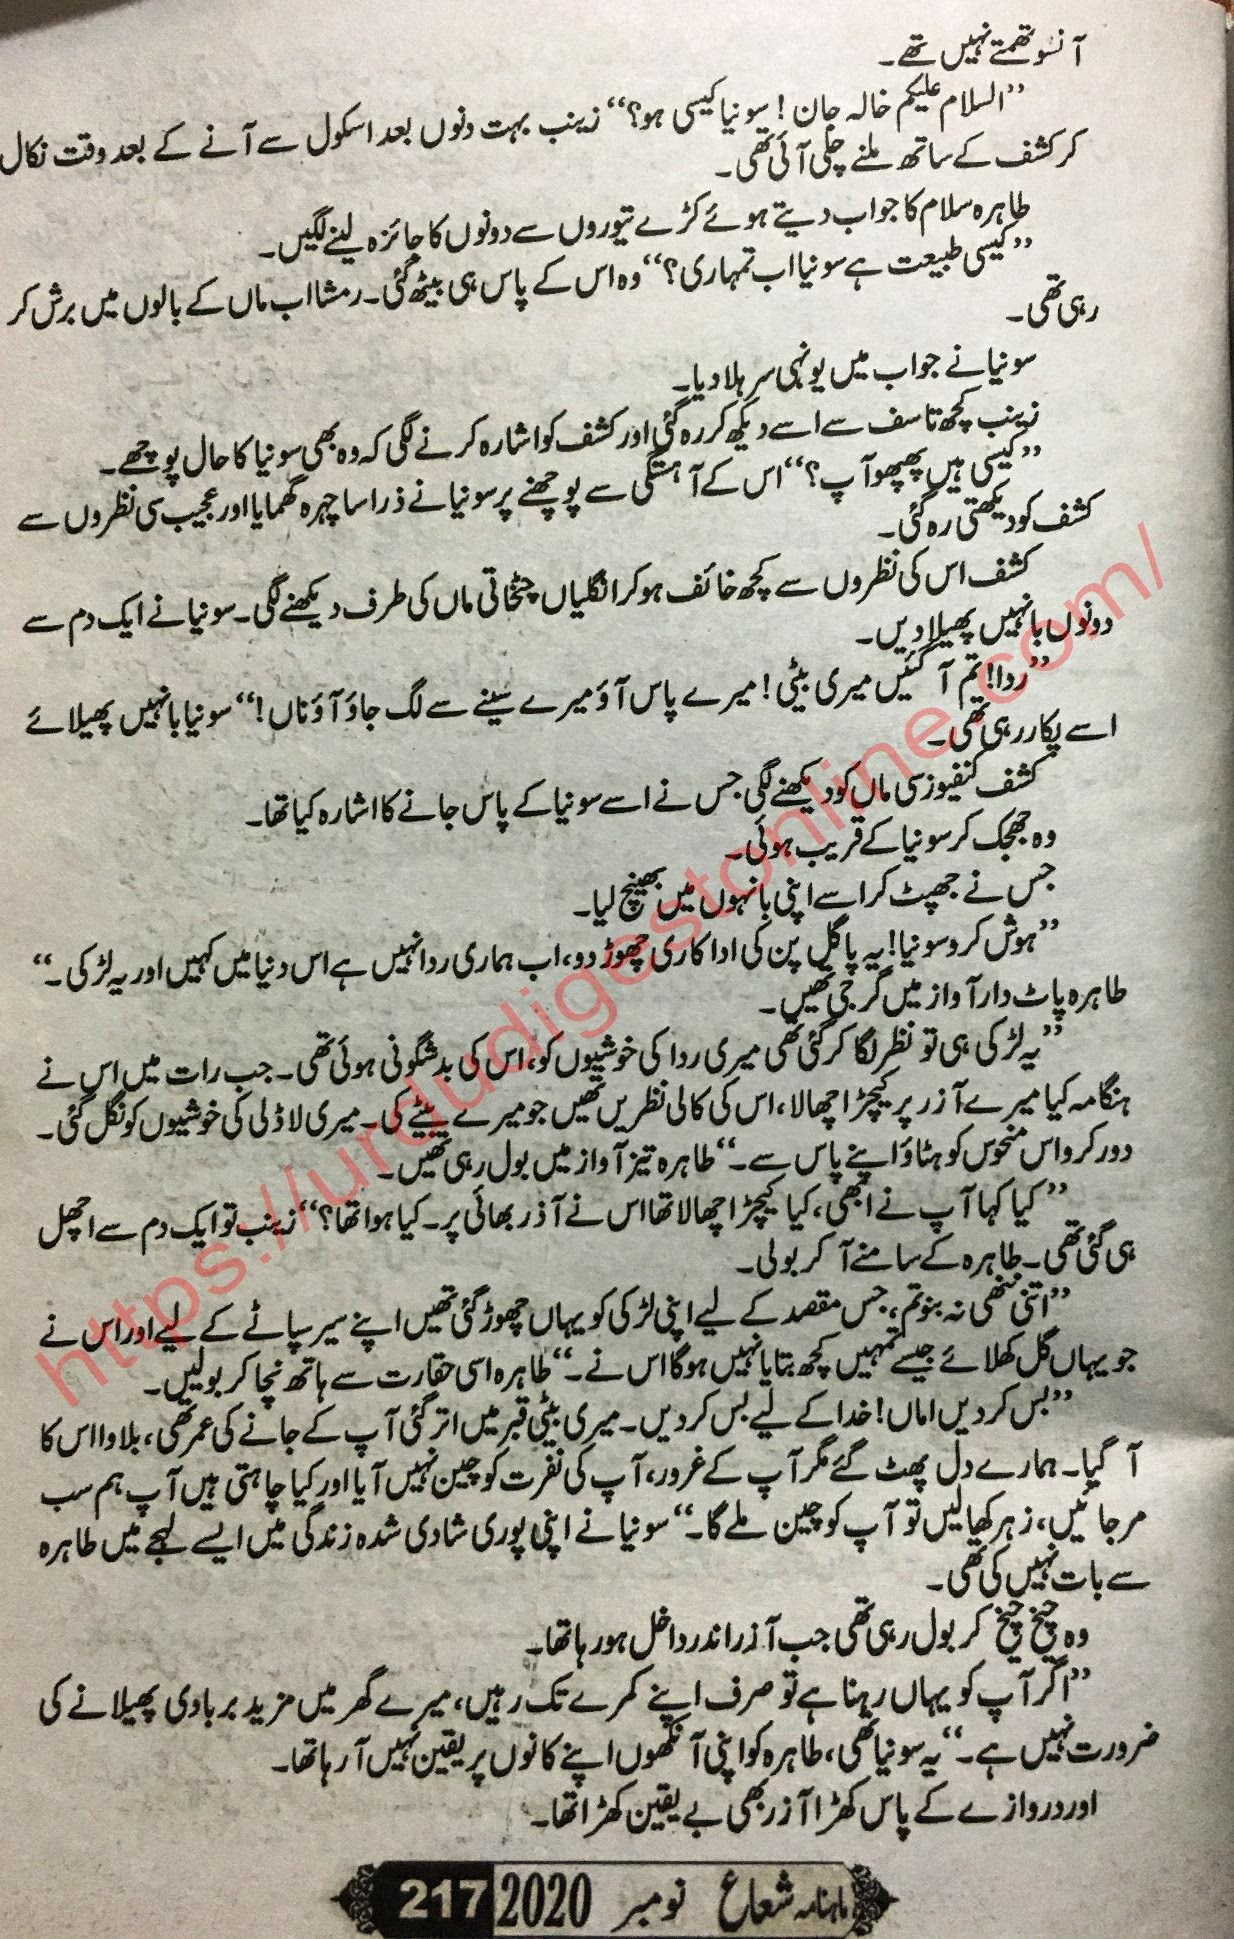 آنسو تھمتے نہیں تھے۔
”السلام علیکم خالہ جان! سونیا کیسی ہو؟“ زینب بہت دنوں بعد اسکول سے آنے کے بعد وقت نکال
کر کشف کے ساتھ ملنے چلی آئی تھی۔
طاہرہ سلام کا جواب دیتے ہوئے کڑے تیوروں سے دونوں کا جائزہ لینے لگیں۔
”کیسی طبیعت ہے سونیا اب تمہاری؟“ وہ اس کے پاس ہی بیٹھ گئی۔ رمشا اب ماں کے بالوں میں برش کر
رہی تھی۔
سونیا نے جواب میں یونہی سر ہلا دیا۔
زینب کچھ تاسف سے اسے دیکھ کر رہ گئی اور کشف کو اشارہ کرنے لگی کہ وہ بھی سونیا کا حال پوچھے۔
”کیسی ہیں پھپھو آپ؟“ اس کے آہستگی سے پوچھنے پر سونیا نے ذرا سا چہرہ گھمایا اور عجیب سی نظروں سے
کشف کو دیکھتی رہ گئی۔
کشف اس کی نظروں سے کچھ خائف ہو کر انگلیاں چٹخاتی ماں کی طرف دیکھنے لگی۔ سونیا نے ایک دم سے
دونوں بانہیں پھیلا دیں۔
”ردا! تم آ گئیں میری بیٹی! میرے پاس آؤ میرے سینے سے لگ جاؤ آؤ ناں!“ سونیا بانہیں پھیلائے
اسے پکار رہی تھی۔
کشف کنفیوز سی ماں کو دیکھنے لگی جس نے اسے سونیا کے پاس جانے کا اشارہ کیا تھا۔
وہ جھجک کر سونیا کے قریب ہوئی۔
جس نے جھپٹ کر اسے اپنی بانہوں میں بھینچ لیا۔
”ہوش کرو سونیا! یہ پاگل پن کی اداکاری چھوڑ دو، اب ہماری ردا نہیں ہے اس دنیا میں کہیں اور یہ لڑکی۔“
طاہرہ پاٹ دار آواز میں گرجی تھیں۔
”یہ لڑکی ہی تو نظر لگا کر گئی تھی میری ردا کی خوشیوں کو، اس کی بدشگونی ہوئی تھی۔ جب رات میں اس نے
ہنگامہ کیا میرے آذر پر کیچڑ اچھالا، اس کی کالی نظریں تھیں جو میرے بیٹے کی۔ میری لاڈلی کی خوشیوں کو نگل گئی۔
دور کرو اس منحوس کو ہٹاؤ اپنے پاس سے۔“ طاہرہ تیز آواز میں بول رہی تھیں۔
”کیا کہا آپ نے ابھی، کیا کیچڑ اچھالا تھا اس نے آذر بھائی پر۔ کیا ہوا تھا؟“ زینب تو ایک دم سے اچھل
ہی گئی تھی۔ طاہرہ کے سامنے آ کر بولی۔
”اتنی ننھی نہ بنو تم، جس مقصد کے لیے اپنی لڑکی کو یہاں چھوڑ گئی تھیں اپنے سیر سپاٹے کے لیے اور اس نے
جو یہاں گل کھلائے جیسے تمہیں کچھ بتایا نہیں ہوگا اس نے۔“ طاہرہ اسی حقارت سے ہاتھ نچا کر بولیں۔
”بس کر دیں اماں! خدا کے لیے بس کر دیں۔ میری بیٹی قبر میں اتر گئی آپ کے جانے کی عمر تھی، بلاوا اس کا
آ گیا۔ ہمارے دل پھٹ گئے مگر آپ کے غرور، آپ کی نفرت کو چین نہیں آیا اور کیا چاہتی ہیں آپ ہم سب
مر جائیں، زہر کھا لیں تو آپ کو چین ملے گا۔“ سونیا نے اپنی پوری شادی شدہ زندگی میں ایسے لہجے میں طاہرہ
سے بات نہیں کی تھی۔
وہ چیخ چیخ کر بول رہی تھی جب آذر اندر داخل ہو رہا تھا۔
”اگر آپ کو یہاں رہنا ہے تو صرف اپنے کمرے تک رہیں، میرے گھر میں مزید بربادی پھیلانے کی
ضرورت نہیں ہے۔“ یہ سونیا تھی، طاہرہ کو اپنی آنکھوں اپنے کانوں پر یقین نہیں آ رہا تھا۔
اور دروازے کے پاس کھڑا آذر بھی بے یقین کھڑا تھا۔
ماہنامہ شعاع نومبر 2020 217
https://urdudigestonline.com/